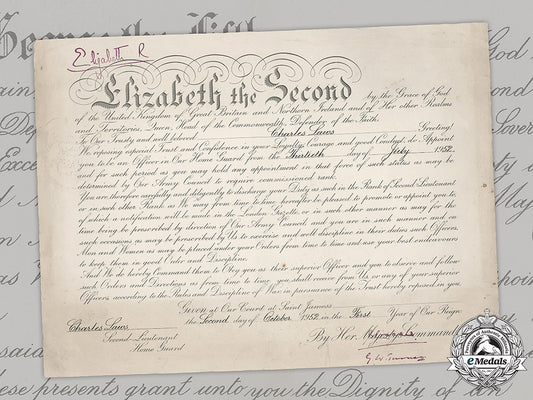 Elizabeth R
Elizabeth the Second
by the Grace of God
of the United Kingdom of Great Britain and Northern Ireland and of Her other Realms
and Territories, Queen, Head of the Commonwealth, Defender of the Faith.
To Our Trusty and well beloved Charles Laws Greeting!
We reposing special Trust and Confidence in your Loyalty, Courage, and good Conduct, do Appoint
you to be an Officer in Our Home Guard from the Thirtieth day of July 1952
and for such period as you may hold any appointment in that force of such status as may be
determined by Our Army Council to require commissioned rank.
You are therefore carefully and diligently to discharge your Duty as such in the Rank of Second Lieutenant
or in such other Rank as We may from time to time hereafter be pleased to promote or appoint you to,
of which a notification will be made in the London Gazette, or in such other manner as may for the
time being be prescribed by direction of Our Army Council and you are in such manner and on
such occasions as may be prescribed by Us to exercise and well discipline in their duties such Officers,
Men and Women as may be placed under your Orders from time to time and use your best endeavours
to keep them in good Order and Discipline.
And We do hereby Command them to Obey you as their superior Officer and you to observe and follow
such Orders and Directions as from time to time you shall receive from Us or any of your superior
Officers according to the Rules and Discipline of War in pursuance of the Trust hereby reposed in you
Given at Our Court at Saint James's
the Second day of October 1952 in the First Year of Our Reign
Charles Laws
Second-Lieutenant
Home Guard
By Her Majesty's Command
eMedals
God
Sover
these presents grant unto you the Dignity of an